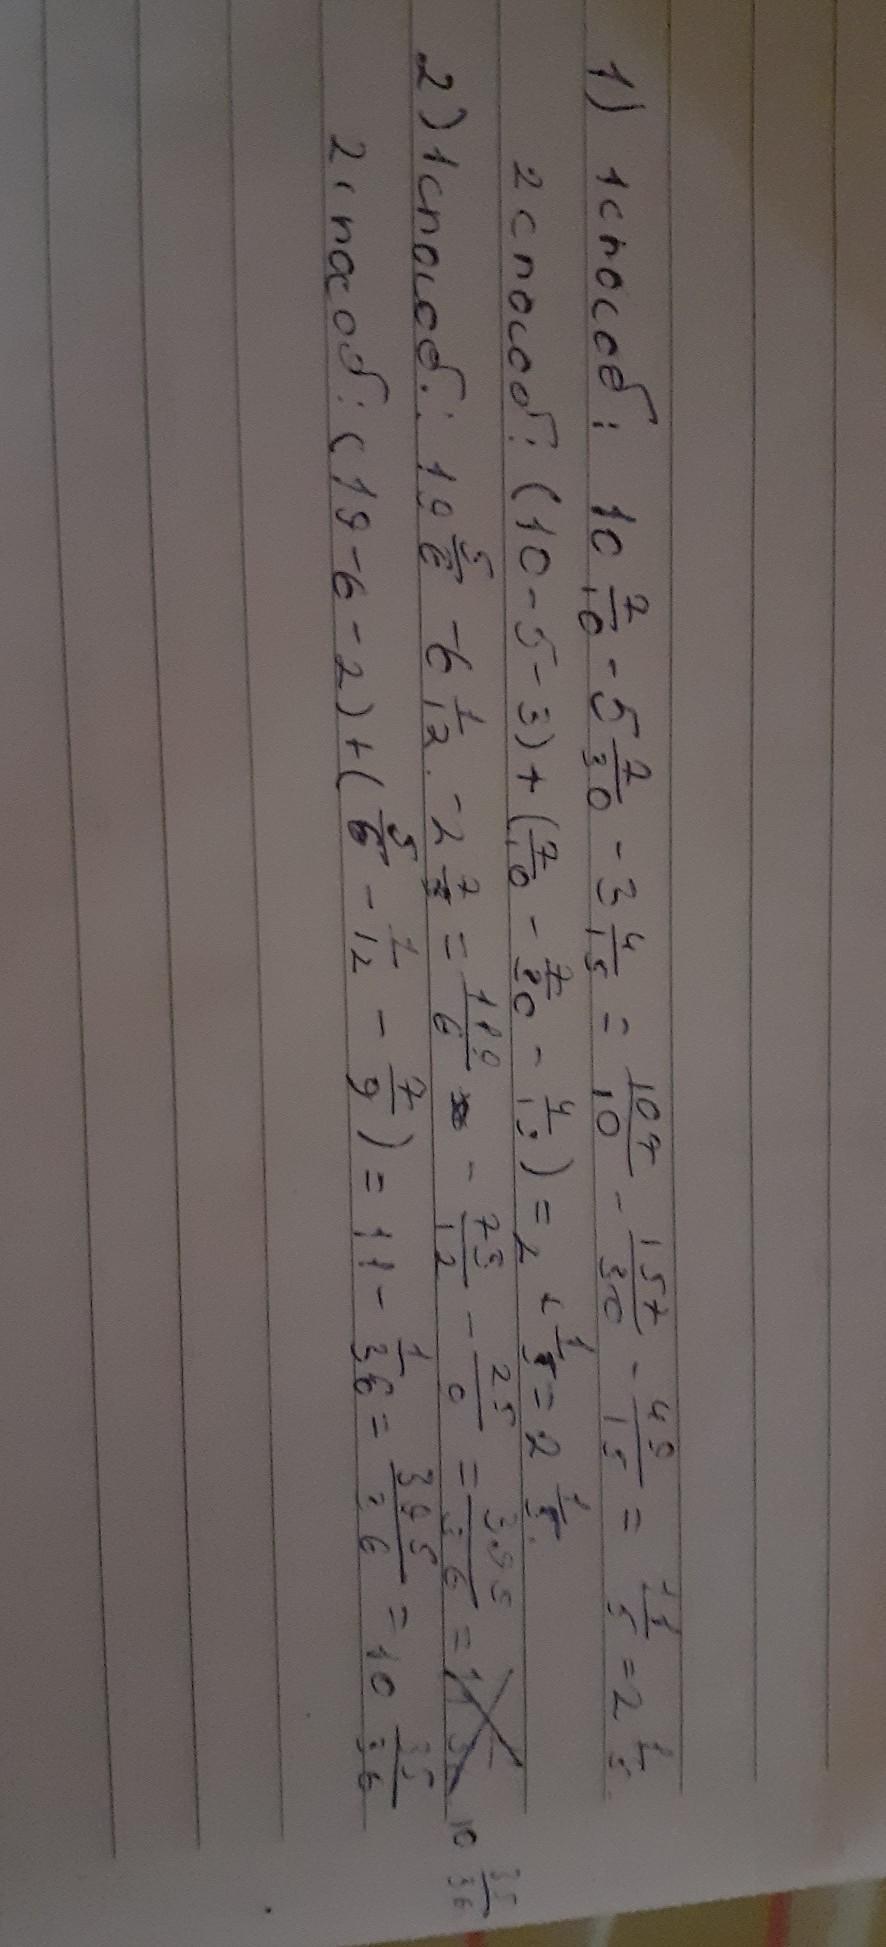 1) 1 способ: 10 7/10 - 5 7/30 - 3 4/15 = 107/10 - 157/30 - 49/15 = 11/5 = 2 1/5
2 способ: (10 - 5 - 3) + (7/10 - 7/30 - 4/15) = 2 + 1/5 = 2 1/5.
2) 1 способ: 19 5/6 - 6 1/12 - 2 7/9 = 119/6 - 73/12 - 25/9 = 395/36 = 10 35/36
2 способ: (19 - 6 - 2) + (5/6 - 1/12 - 7/9) = 11 - 1/36 = 395/36 = 10 35/36